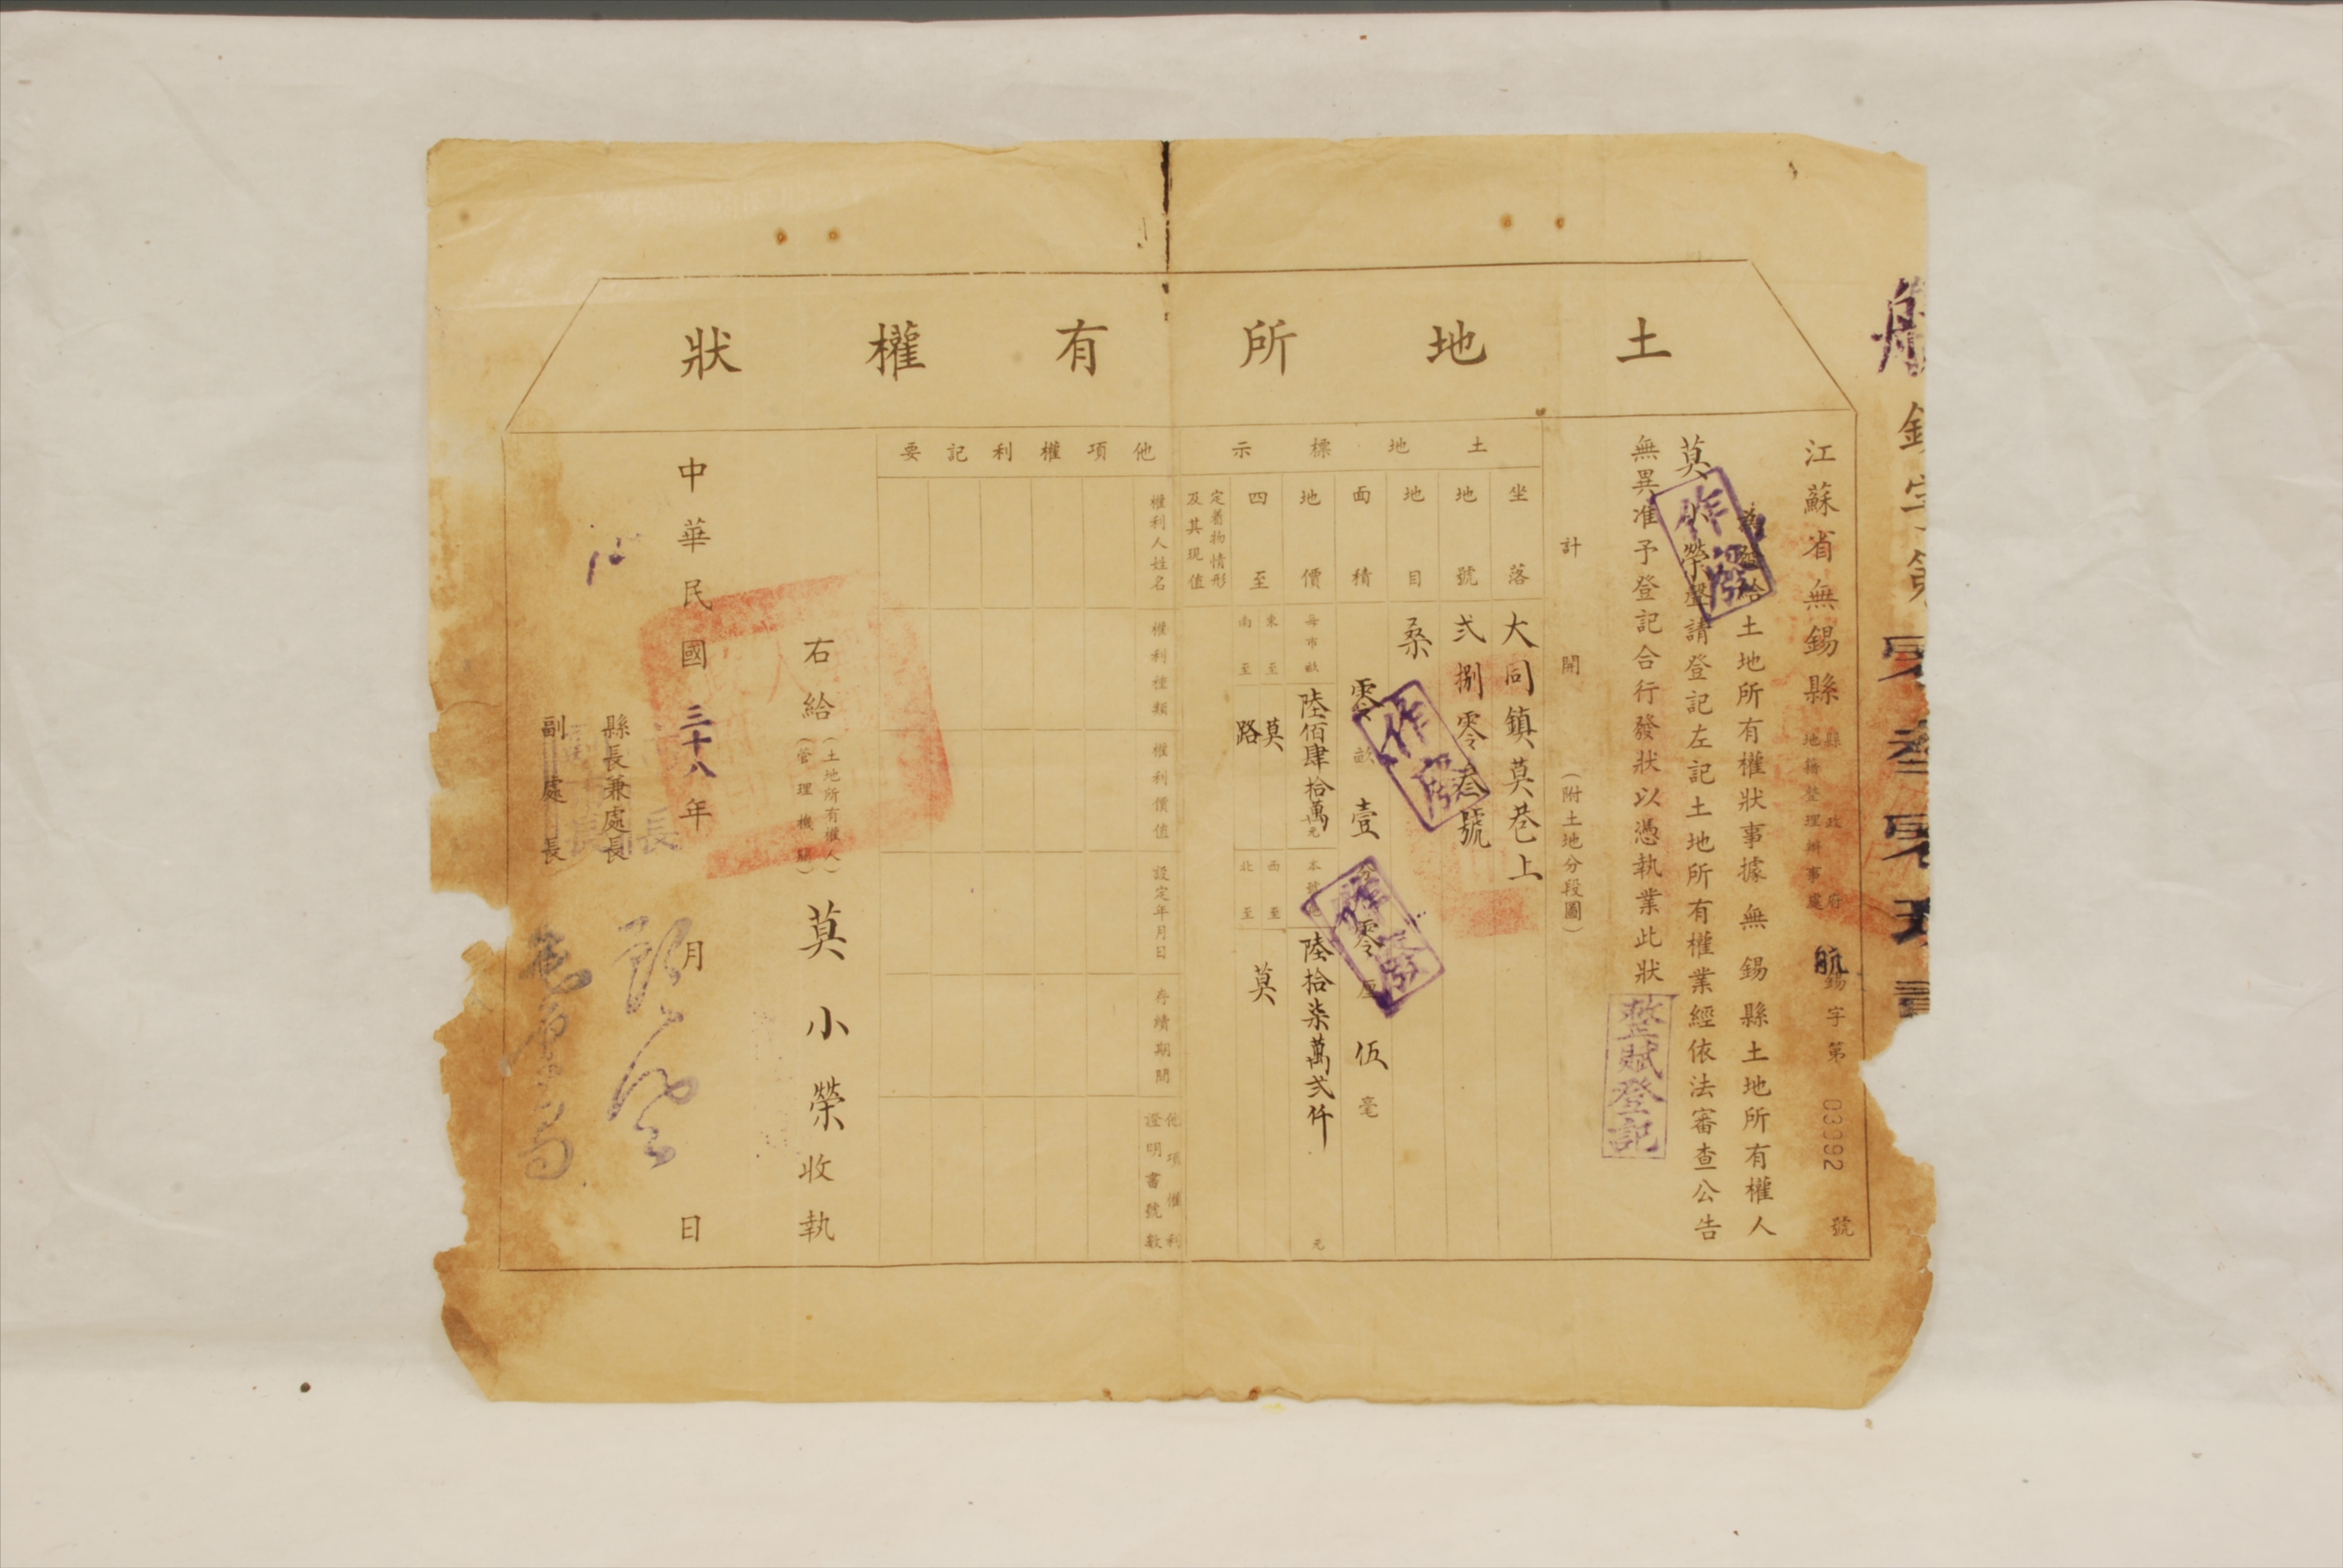 土地所有權狀
零叁零玖
江蘇省無錫縣
縣政府
地籍整理辦事處
航錫字第03992號
為發給土地所有權狀事據無錫縣土地所有權人
莫小榮聲請登記左記土地所有權業經依法審查公告
無異准予登記合行發狀以憑執業此狀
整賦登記
作廢
計開(附土地分段圖)
土地標示
坐落 大同鎮莫巷上
地號 弍捌零叁號
地目 桑
面積 零畝壹分零厘伍毫
作廢
作廢
地價 每市畝 陸佰肆拾萬元 本號地 陸拾柒萬弍仟元
四至 東至 莫 西至 莫
南至 路 北至
定着物情形及其現值
他項權利記要
權利人姓名 權利種類 權利價值 設定年月日 存續期間 他項權利證明書號數
右給(土地所有權人)(管理機關)莫小榮收執
中華民國三十八年 月 日
縣長兼處長
副處長